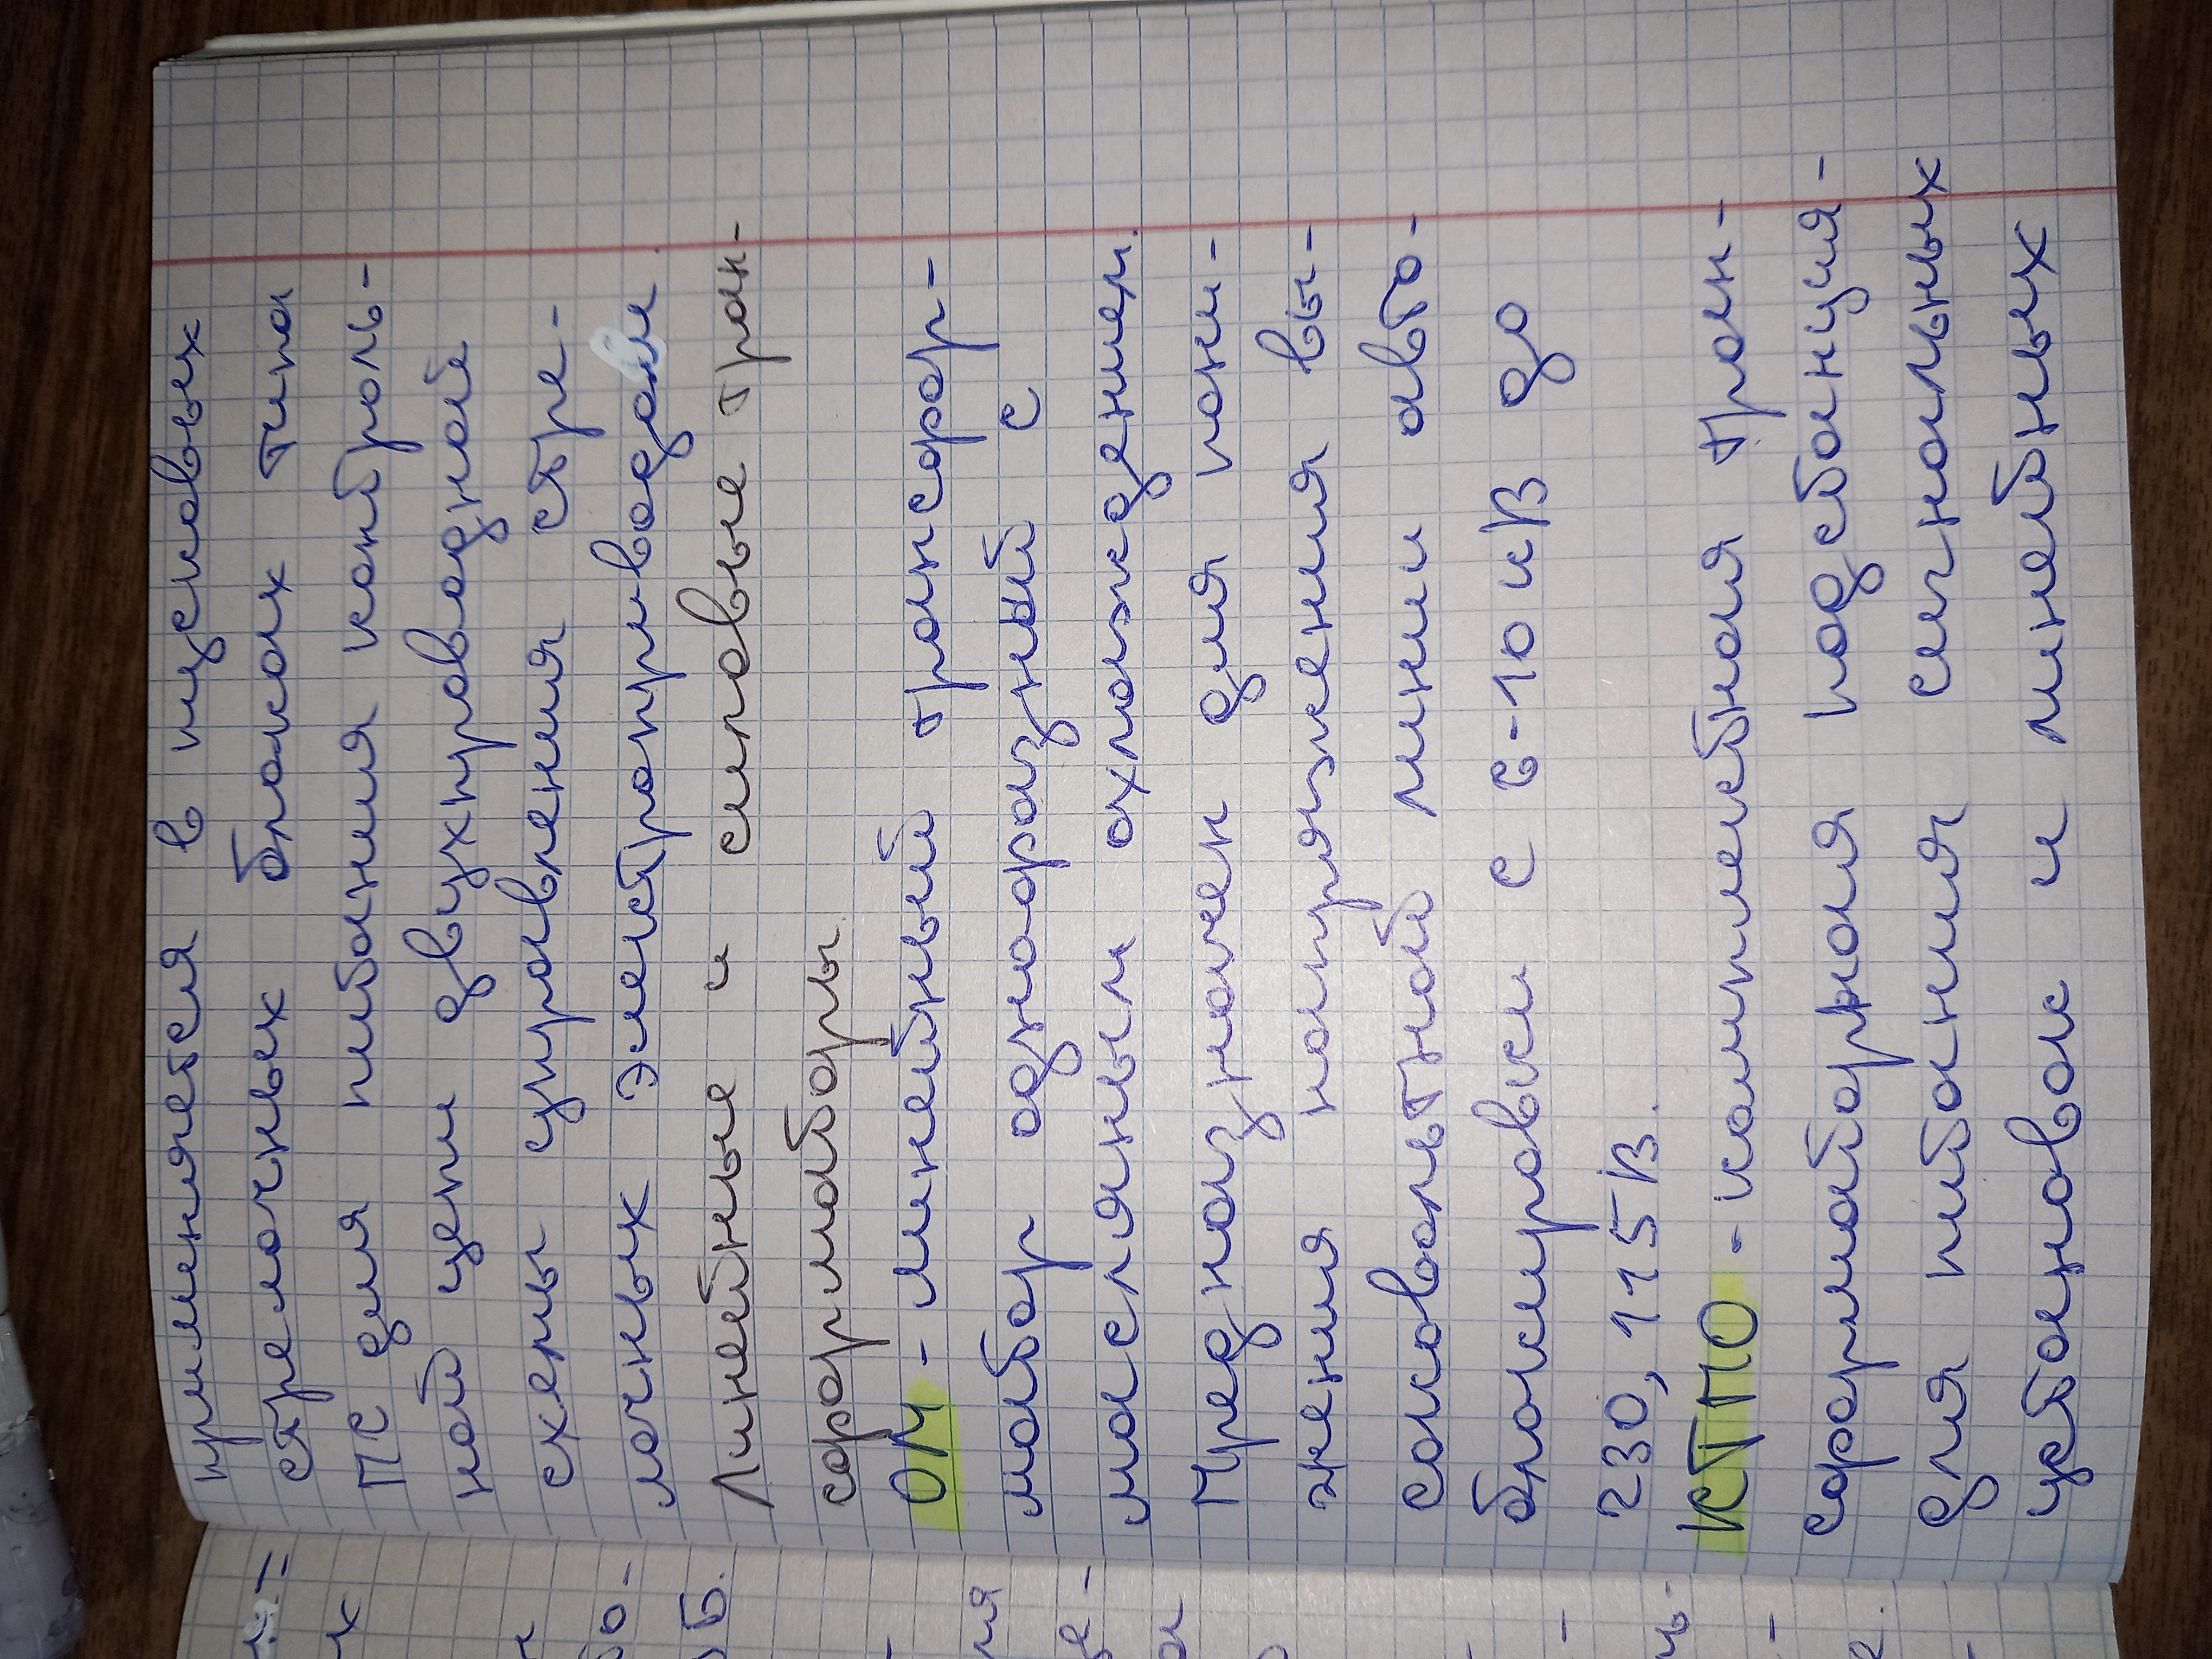 применяется в пусковых
стрелочных блоках типа
ПС для питания контроль-
ной цепи двухпроводной
схемы управления стре-
лочных электроприводами.
Линейные и силовые тран-
сформаторы.
ОМ - линейный трансфор-
матор однофазный с
масляным охлаждением.
Предназначен для пони-
жения напряжения вы-
соковольтной линии авто-
блокировки с 6-10 кВ до
230, 115 В.
КТПО - комплектная тран-
сформаторная подстанция-
для питания сигнальных
установок и линейных